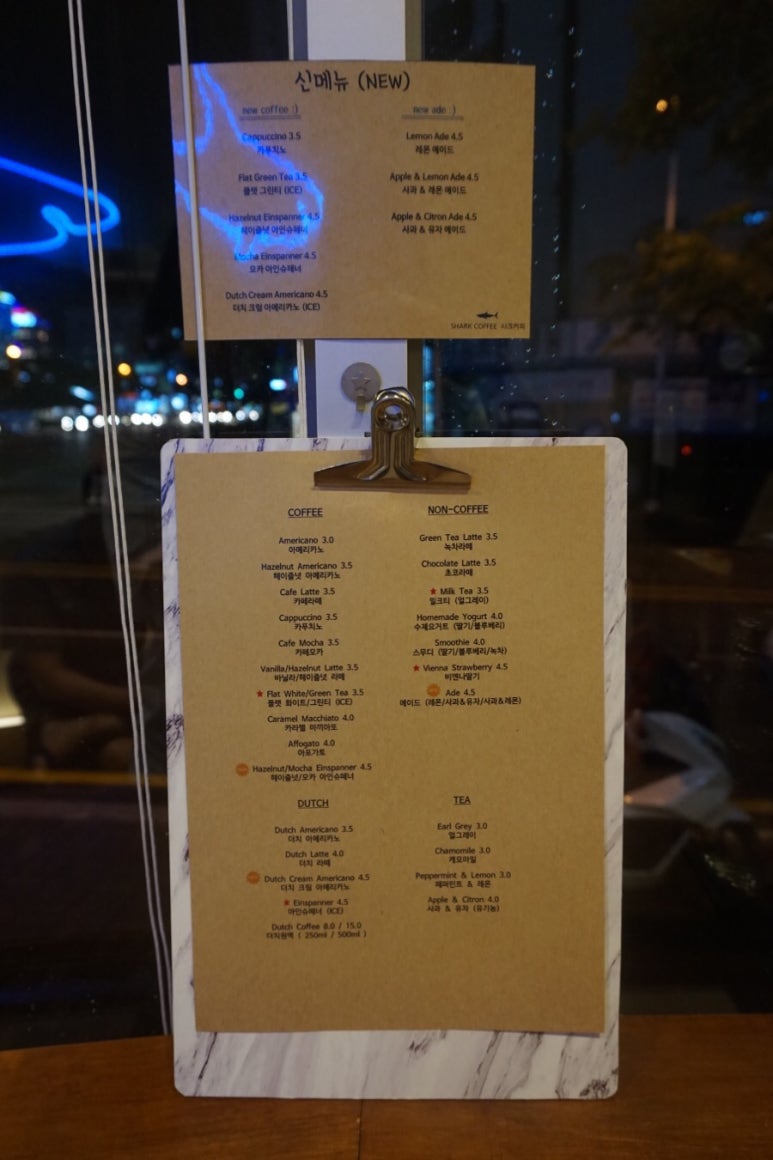 신메뉴 (NEW)
new coffee :)
Cappuccino 3.5
카푸치노
Flat Green Tea 3.5
플랫 그린티 (ICE)
Hazelnut Einspanner 4.5
헤이즐넛 아인슈패너
Mocha Einspanner 4.5
모카 아인슈패너
Dutch Cream Americano 4.5
더치 크림 아메리카노 (ICE)
new ade :)
Lemon Ade 4.5
레몬 에이드
Apple & Lemon Ade 4.5
사과 & 레몬 에이드
Apple & Citron Ade 4.5
사과 & 유자 에이드
SHARK COFFEE 샤크커피
COFFEE
Americano 3.0
아메리카노
Hazelnut Americano 3.5
헤이즐넛 아메리카노
Cafe Latte 3.5
카페라떼
Cappuccino 3.5
카푸치노
Cafe Mocha 3.5
카페모카
Vanilla/Hazelnut Latte 3.5
바닐라/헤이즐넛 라떼
★ Flat White/Green Tea 3.5
플랫 화이트/그린티 (ICE)
Caramel Macchiato 4.0
카라멜 마끼아또
Affogato 4.0
아포가토
Hazelnut/Mocha Einspanner 4.5
헤이즐넛/모카 아인슈패너
NON-COFFEE
Green Tea Latte 3.5
녹차라떼
Chocolate Latte 3.5
초코라떼
★ Milk Tea 3.5
밀크티 (얼그레이)
Homemade Yogurt 4.0
수제요거트 (딸기/블루베리)
Smoothie 4.0
스무디 (딸기/블루베리/녹차)
★ Vienna Strawberry 4.5
비엔나딸기
Ade 4.5
에이드 (레몬/사과&유자/사과&레몬)
DUTCH
Dutch Americano 3.5
더치 아메리카노
Dutch Latte 4.0
더치 라떼
Dutch Cream Americano 4.5
더치 크림 아메리카노
★ Einspanner 4.5
아인슈패너 (ICE)
Dutch Coffee 8.0 / 15.0
더치원액 ( 250ml / 500ml )
TEA
Earl Grey 3.0
얼그레이
Chamomile 3.0
케모마일
Peppermint & Lemon 3.0
페퍼민트 & 레몬
Apple & Citron 4.0
사과 & 유자 (유기농)